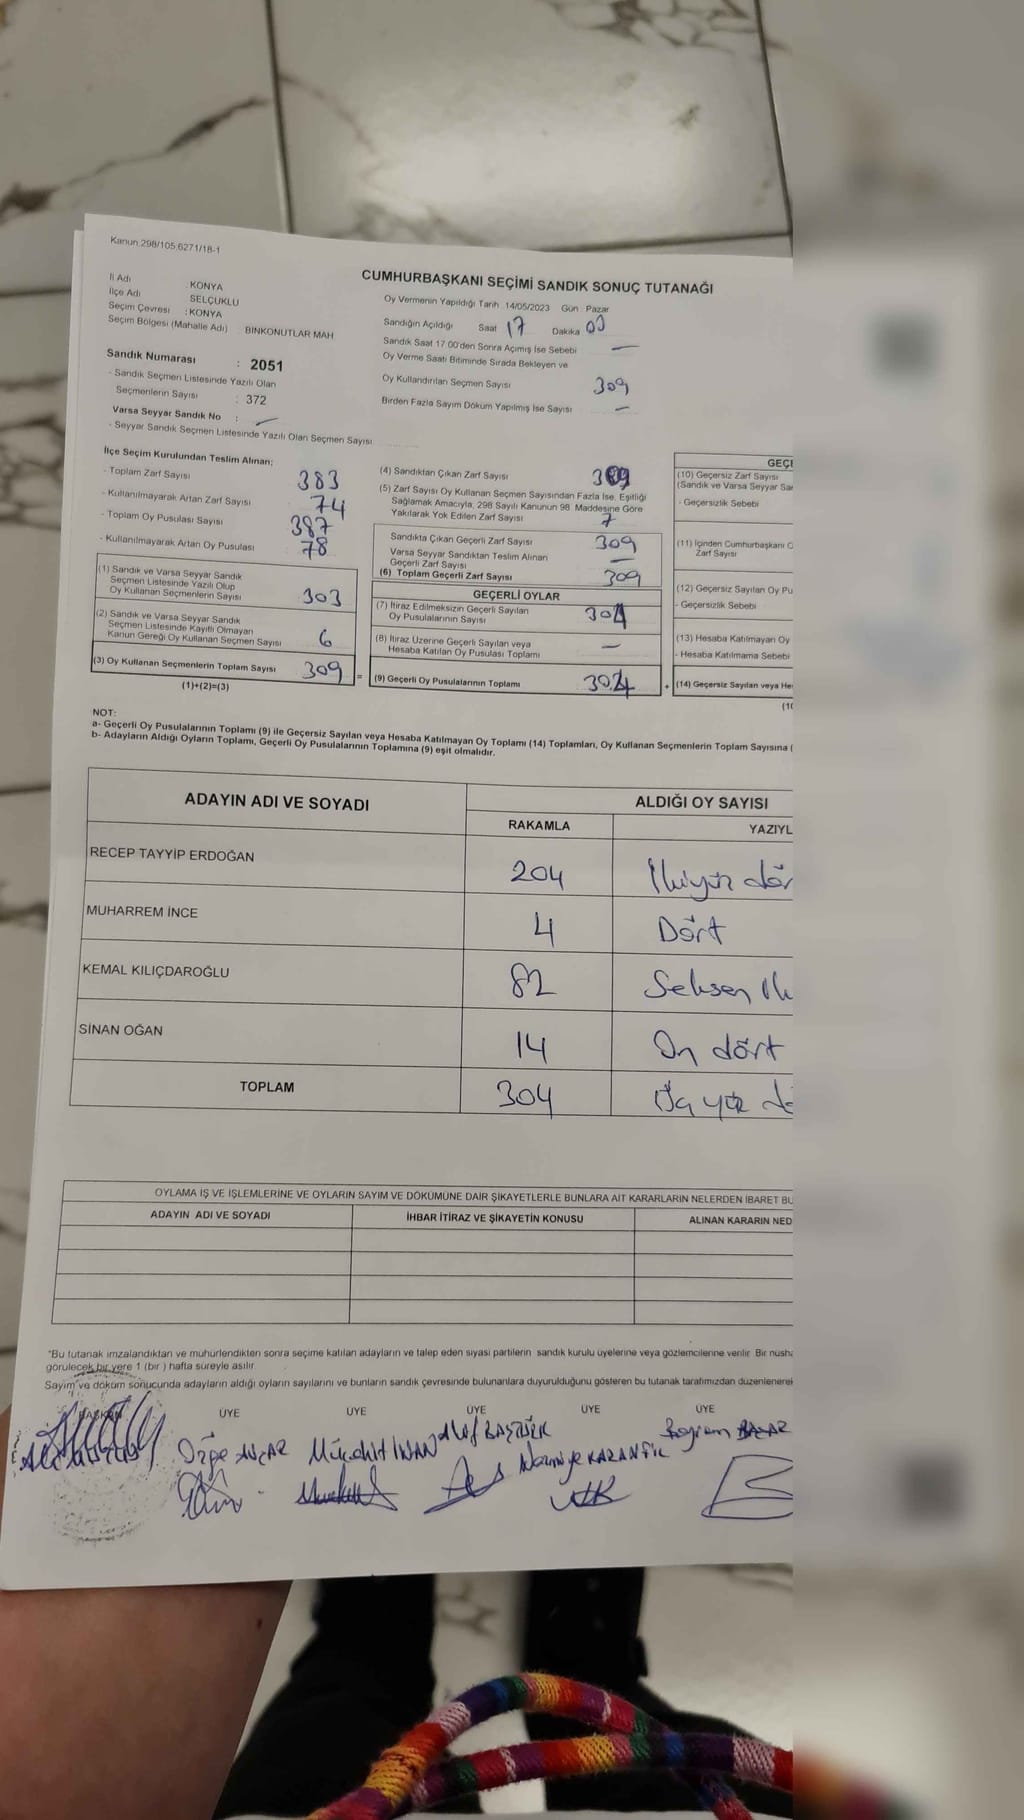 Kanun 298/105,6271/18-1
CUMHURBAŞKANI SEÇİMİ SANDIK SONUÇ TUTANAĞI
İl Adı : KONYA
İlçe Adı SELÇUKLU
Seçim Çevresi : KONYA
Seçim Bölgesi (Mahalle Adı) BİNKONUTLAR MAH
Sandık Numarası : 2051
- Sandık Seçmen Listesinde Yazılı Olan
Seçmenlerin Sayısı : 372
Varsa Seyyar Sandık No : —
- Seyyar Sandık Seçmen Listesinde Yazılı Olan Seçmen Sayısı
Oy Vermenin Yapıldığı Tarih 14/05/2023 Gün Pazar
Sandığın Açıldığı Saat 17 Dakika 00
Sandık Saat 17 00'den Sonra Açımış İse Sebebi —
Oy Verme Saati Bitiminde Sırada Bekleyen ve
Oy Kullandırılan Seçmen Sayısı 309
Birden Fazla Sayım Döküm Yapılmış İse Sayısı —
İlçe Seçim Kurulundan Teslim Alınan;
- Toplam Zarf Sayısı 383
- Kullanılmayarak Artan Zarf Sayısı 74
- Toplam Oy Pusulası Sayısı 387
- Kullanılmayarak Artan Oy Pusulası 78
(1) Sandık ve Varsa Seyyar Sandık
Seçmen Listesinde Yazılı Olup
Oy Kullanan Seçmenlerin Sayısı 303
(2) Sandık ve Varsa Seyyar Sandık
Seçmen Listesinde Kayıtlı Olmayan
Kanun Gereği Oy Kullanan Seçmen Sayısı 6
(3) Oy Kullanan Seçmenlerin Toplam Sayısı 309 =
(1)+(2)=(3)
(4) Sandıktan Çıkan Zarf Sayısı 309
(5) Zarf Sayısı Oy Kullanan Seçmen Sayısından Fazla İse, Eşitliği
Sağlamak Amacıyla, 298 Sayılı Kanunun 98. Maddesine Göre
Yakılarak Yok Edilen Zarf Sayısı
Sandıkta Çıkan Geçerli Zarf Sayısı 309
Varsa Seyyar Sandıktan Teslim Alınan
Geçerli Zarf Sayısı —
(6) Toplam Geçerli Zarf Sayısı 309
GEÇERLİ OYLAR
(7) İtiraz Edilmeksizin Geçerli Sayılan
Oy Pusulalarının Sayısı 304
(8) İtiraz Üzerine Geçerli Sayılan veya
Hesaba Katılan Oy Pusulası Toplamı —
(9) Geçerli Oy Pusulalarının Toplamı 304 +
GEÇE
(10) Geçersiz Zarf Sayısı
(Sandık ve Varsa Seyyar Sa
- Geçersizlik Sebebi
(11) İçinden Cumhurbaşkanı
Zarf Sayısı
(12) Geçersiz Sayılan Oy Pu
- Geçersizlik Sebebi
(13) Hesaba Katılmayan Oy
- Hesaba Katılmama Sebebi
(14) Geçersiz Sayılan veya He
NOT:
a- Geçerli Oy Pusulalarının Toplamı (9) ile Geçersiz Sayılan veya Hesaba Katılmayan Oy Toplamı (14) Toplamları, Oy Kullanan Seçmenlerin Toplam Sayısına (
b- Adayların Aldığı Oyların Toplamı, Geçerli Oy Pusulalarının Toplamına (9) eşit olmalıdır.
ADAYIN ADI VE SOYADI ALDIĞI OY SAYISI
RAKAMLA YAZIYL
RECEP TAYYİP ERDOĞAN 204 İkiyüz dör
MUHARREM İNCE 4 Dört
KEMAL KILIÇDAROĞLU 82 Seksen ik
SİNAN OĞAN 14 On dört
TOPLAM 304 Üç yüz dö
OYLAMA İŞ VE İŞLEMLERİNE VE OYLARIN SAYIM VE DÖKÜMÜNE DAİR ŞİKAYETLERLE BUNLARA AİT KARARLARIN NELERDEN İBARET BU
ADAYIN ADI VE SOYADI İHBAR İTİRAZ VE ŞİKAYETİN KONUSU ALINAN KARARIN NED
"Bu tutanak imzalandıktan ve mühürlendikten sonra seçime katılan adayların ve talep eden siyasi partilerin sandık kurulu üyelerine veya gözlemcilerine verilir. Bir nüsha
görülecek bir yere 1 (bir ) hafta süreyle asılır.
Sayım ve döküm sonucunda adayların aldığı oyların sayılarını ve bunların sandık çevresinde bulunanlara duyurulduğunu gösteren bu tutanak tarafımızdan düzenlenerek
BAŞKAN ÜYE ÜYE ÜYE ÜYE ÜYE
Özge Mücahit İNAN Nazmiye KARANFİL Bayram